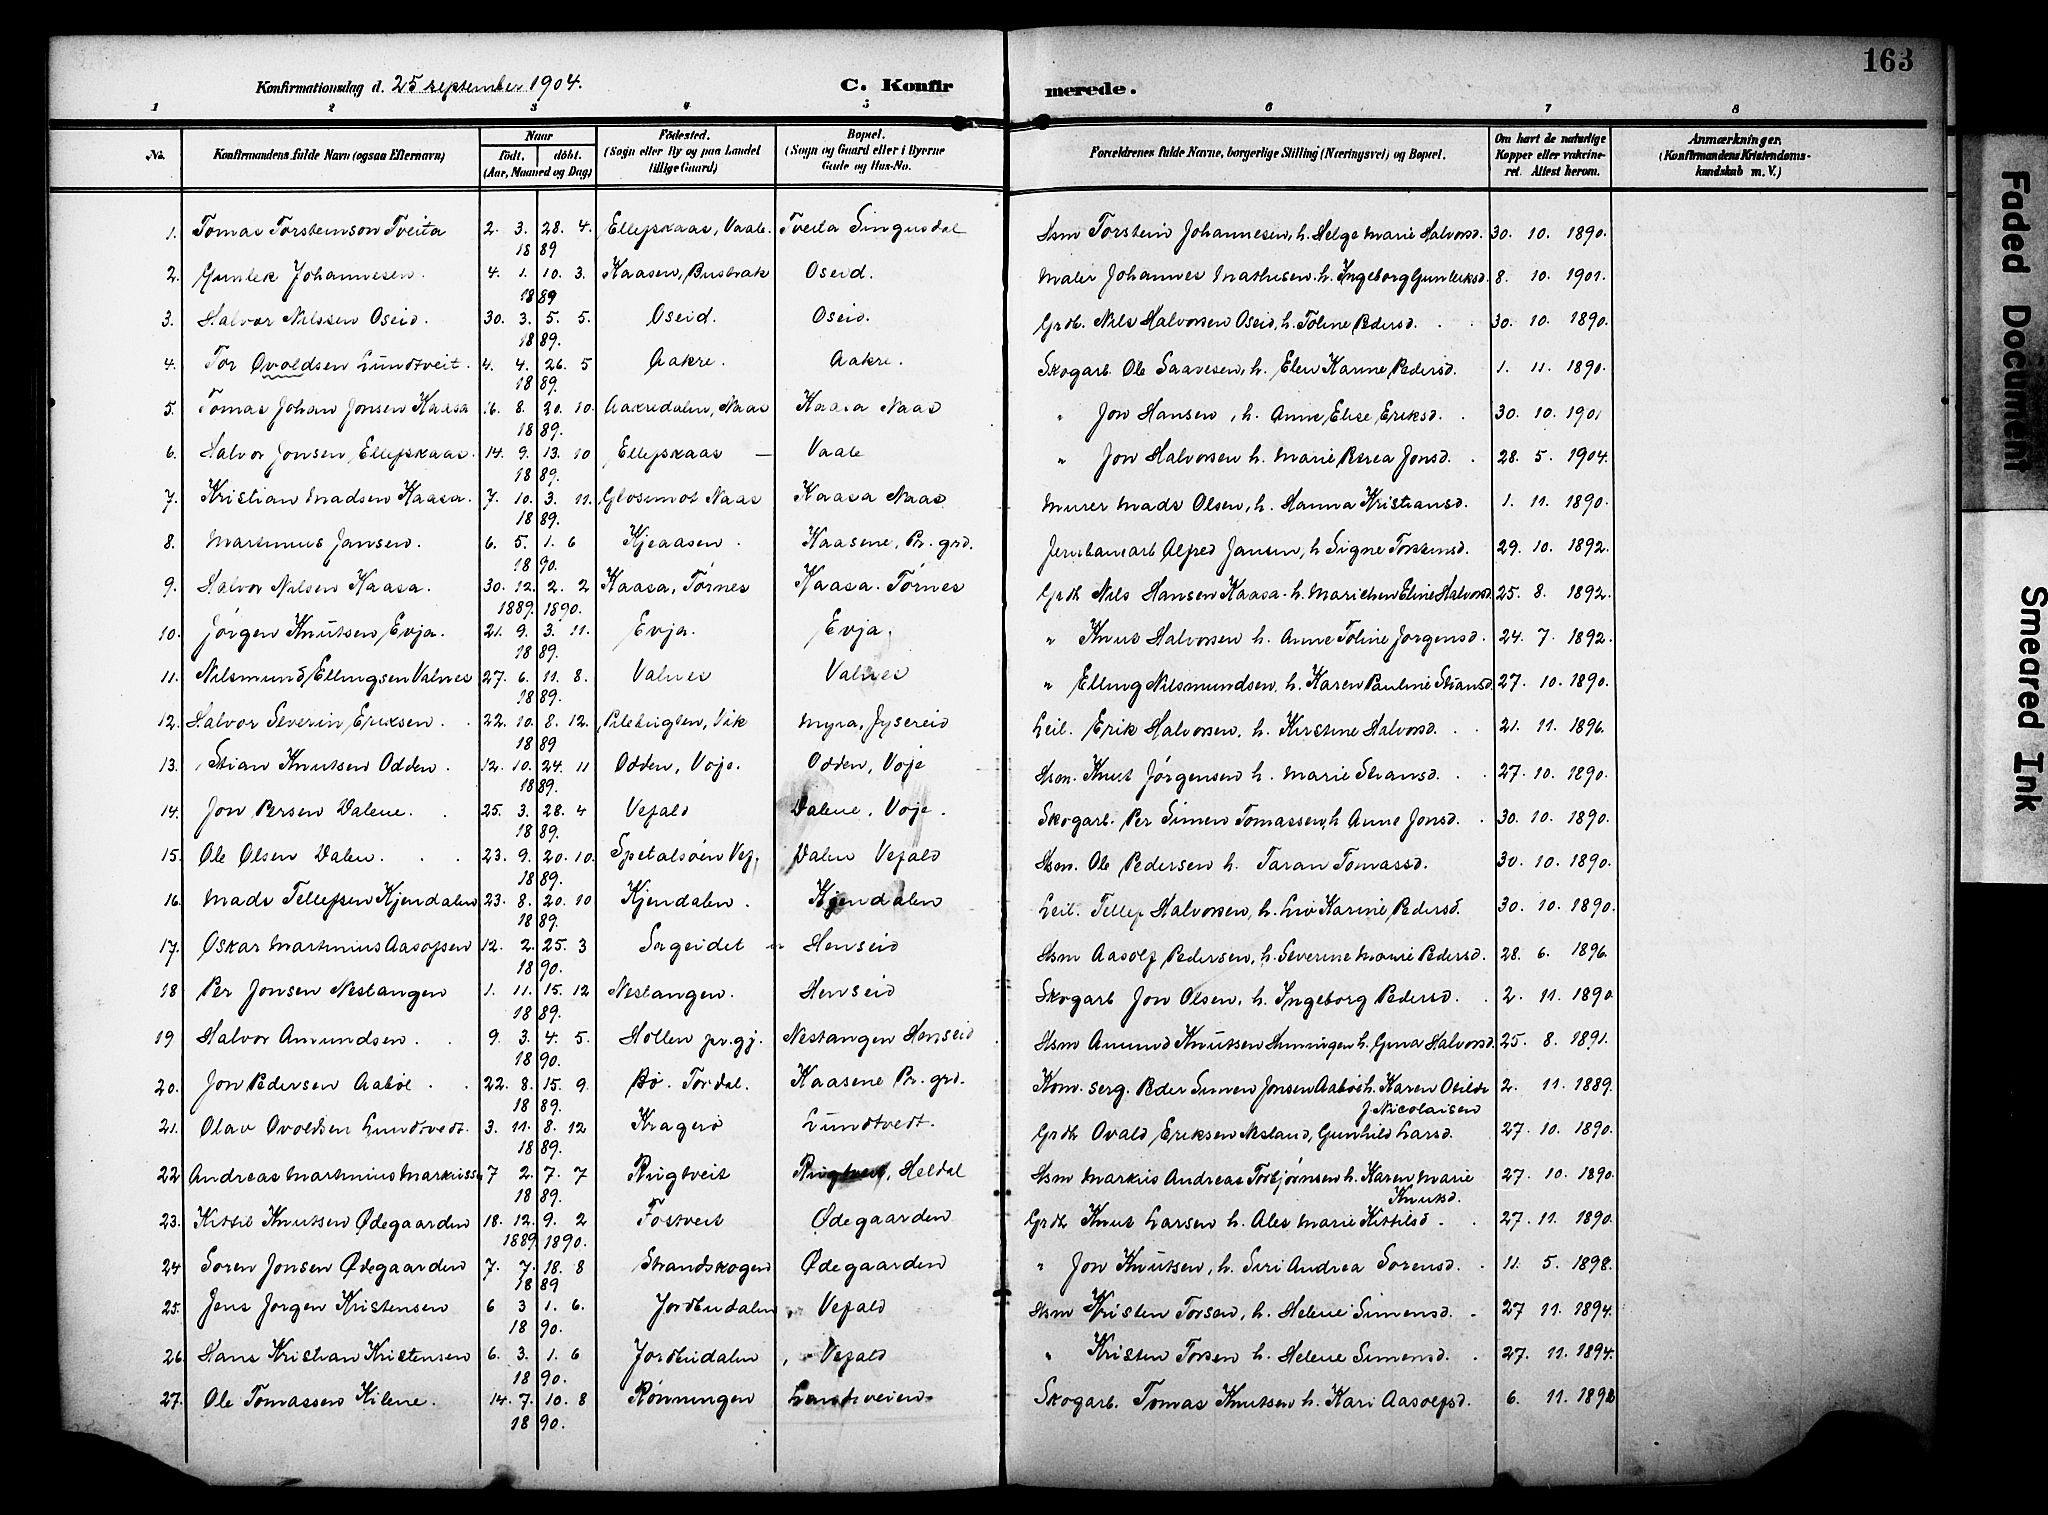 163
Konfirmationsdag d. 25 september 1904. C. Konfirmerede.
1 2 3 4 5 6 7 8
No. Konfirmandens fulde Navn (ogsaa Efternavn) Naar födt, döbt. (Aar, Maaned og Dag) Födested. (Sogn eller By og paa Landet tillige Gaard) Bopæl. (Sogn og Gaard eller i Byerne Gade og Hus-No. Forældrenes fulde Navne, borgerlige Stilling (Næringsvei) og Bopæl. Om havt de naturlige Kopper eller vakcineret. Attest herom. Anmærkninger. (Konfirmandens Kristendomskundskab m. V.)
1. Tomas Torsteinson Tveita 2. 3. 28. 4. 1889 Ellefskaas, Vaale. Tveita Singusdal Hsm Torstein Johannesen, h. Helge Marie Halvorsd. 30. 10. 1890.
2. Gunlek Johannesen. 4. 1. 10. 3. 1889 Kaasen, Bustrak Oseid. Maler Johannes Mathisen h. Ingeborg Gunleiksd. 8. 10. 1901.
3. Halvor Nilssen Oseid. 30. 3. 5. 5. 1889. Oseid. Oseid. Grdb. Nils Halvorsen Oseid, h. Toline Pedersd. 30. 10. 1890.
4. Tor Ovoldsen Lundtveit. 4. 4. 26. 5 1889. Aakre. Aakre. Skogarb. Ole Saavesen, h. Elen Karine Pedersd. 1. 11. 1890.
5. Tomas Johan Jonsen Kaasa 16. 8. 20. 10. 1889. Aakredalen, Naas Kaasa Naas " Jon Hansen, h. Anne Elise Eriksd. 30. 10. 1901
6. Halvor Jonsen Ellefskaas. 14. 9. 13. 10 1889. Ellefskaas — Vaale " Jon Halvorsen h. Marie Berea Jonsd. 28. 5. 1904.
7. Kristian Madsen Kaasa. 7. 10. 3. 11. 1889. Glosimot Naas Kaasa Naas Murer Mads Olsen, h. Hanna Kristiansd. 1. 11. 1890.
8. Martinius Jansen. 6. 5. 1. 6 1890. Kjeaasen. Kaasene, Pr. grd. Jernbanearb Alfred Jansen, h Signe Torstensd. 29. 10. 1892.
9. Halvor Nilsen Kaasa. 30. 12. 2. 2 1889. 1890. Kaasa, Tørnes Kaasa. Tørnes Grdb Nils Hansen Kaasa. h. Marichen Eline Halvorsd 25. 8. 1892.
10. Jörgen Knutsen, Evja. 21. 9. 3. 11. 1889. Evja. Evja. " Knut Halvorsen h. Anne Toline Jorgensd. 24. 7. 1892.
11. Nilsmund Ellingsen Valnes 27. 6. 11. 8. 1889. Valnes Valnes " Elling Nilsmundsen, h. Karen Pauline Stiansd 27. 10. 1890.
12. Halvor Severin Eriksen. 22. 10. 8. 12. 1889 Pilebugten, Vik Myra, Jysereid Leil. Erik Halvorsen. h. Kirstine Halvorsd. 21. 11. 1896.
13. Stian Knutsen Odden. 12. 10. 24. 11 1889. Odden, Voje. Odden, Voje Hsm. Knut Jørgensen h. Marie Stiansd. 27. 10. 1890.
14. Jon Persen Dalene. 25. 3. 28. 4 1889. Vefald Dalene, Voje. Skogarb. Per Simen Tomassen, h Anne Jonsd. 30. 10. 1890.
15. Ole Olsen Dalen. 23. 9. 20. 10. 1889. Spetalsöen Vef. Dalen Vefald Hsm. Ole Pedersen h. Taran Tomassd. 30. 10. 1890.
16. Mads Tellefsen Kjendalen 23. 8. 20. 10 1889. Kjendalen. Kjendalen Leil. Tellef Halvorsen, h. Liv Karine Pedersd. 30. 10. 1890.
17. Oskar Martinius Aasolfsen 12. 2. 25. 3 1890. Sageidet Henseid Hsm Aasolf Pedersen, h. Severine Marie Pedersd. 28. 6. 1896.
18 Per Jonsen Nestangen 1. 11. 15. 12 1889. Nestangen. Henseid Skogarb Jon Olsen, h. Ingeborg Pedersd. 2. 11. 1890
19 Halvor Amundsen. 9. 3. 4. 5. 1890. Hollen pr.gj. Nestangen Henseid Hsm Amund Knutsen Henningen h. Gina Halvorsd. 25. 8. 1891.
20. Jon Pedersen Aaböe. 22. 8. 15. 9. 1889. Bö. Tordal. Kaasene Pr. grd. Kom. serg. Peder Simen Jonsen Aaböe h. Karen Otilde J. Nicolaisen 2. 11. 1889.
21. Olav Ovoldsen Lundtvedt. 3. 11. 8. 12 1889. Kragerö Lundtvedt. Grdb Ovald Eriksen Nesland, Gunhild Larsd. 27. 10. 1890.
22 Andreas Martinius Markussen 7 2. 7. 7 1889. Rugtveit Rugtveit, Heldal Hsm Markus Andreas Torbjørnsen h. Karen Marie Knutsd. 27. 10. 1890.
23. Kittil Knutsen Ødegaarden 18. 12. 9. 2 1889 1890. Tostveit Ødegaarden Grdb Knut Larsen h. Ales Marie Kittilsd. 27. 11. 1890.
24 Soren Jonsen Ødegaarden 7. 7. 18. 8 1889 Strandskogen Ødegaarden " Jon Knutsen, h. Siri Andrea Sorensd. 11. 5. 1898.
25. Jens Jorgen Kristensen 6 3 1. 6. 1890. Jordbudalen Vefald Hsm Kristen Torsen, h. Helene Simensd. 27 11. 1894.
26. Hans Kristian Kristensen 6. 3. 1. 6 1890. Jordbudalen Vefald " Kristen Torsen h. Helene Simensd. 27. 11. 1894.
27. Ole Tomassen Kilene. 14. 7. 10. 8 1890. Rönningen Landeveien Skogarb. Tomas Knutsen h. Kari Aasolfsd. 6. 11. 1892
Faded Document
Smeared Ink